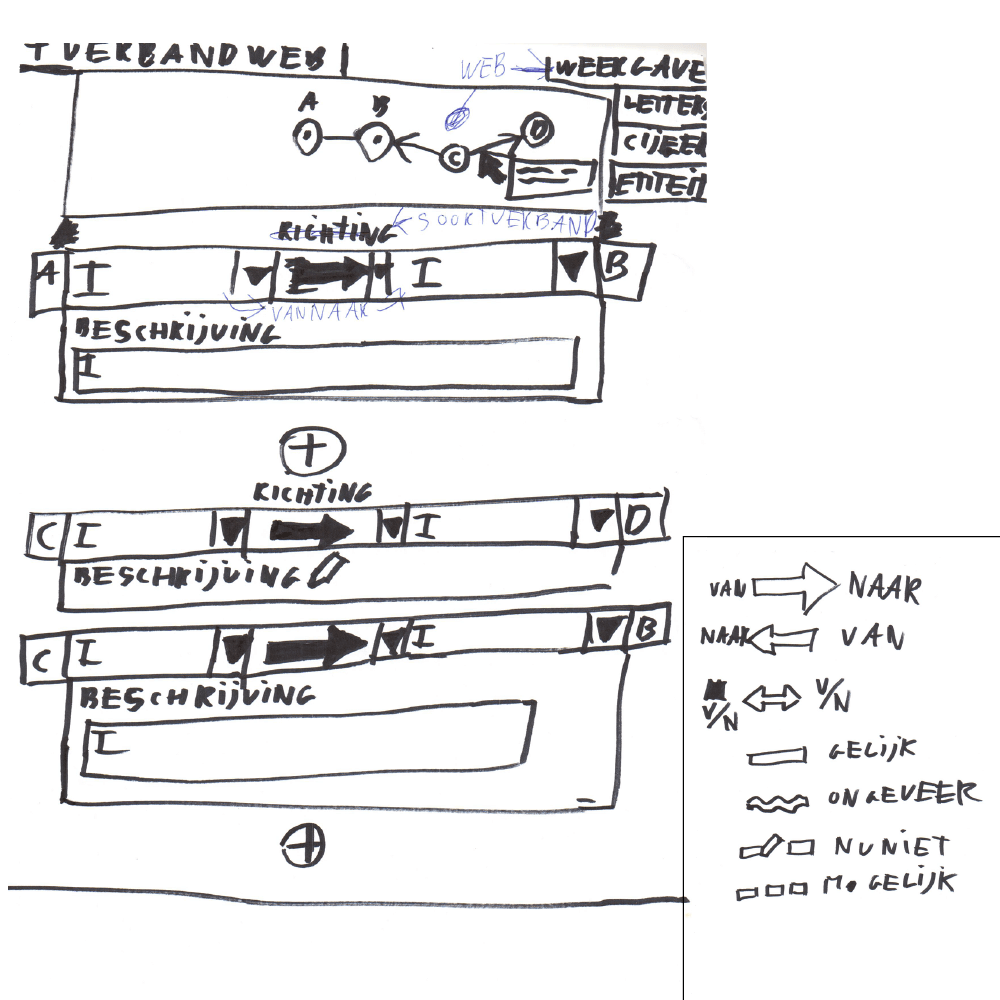 + VERBANDWEB
WEB
WEERGAVE
LETTERS
A B
D
CIJFER
C
ENTITEI
RICHTING SOORTVERBAND
A I I B
VANNAAR
BESCHRIJVING
I
+
RICHTING
C I I D
BESCHRIJVING
C I I B
BESCHRIJVING
I
+
VAN NAAR
NAAR VAN
V/N V/N
GELIJK
ONGEVEER
NU NIET
MOGELIJK